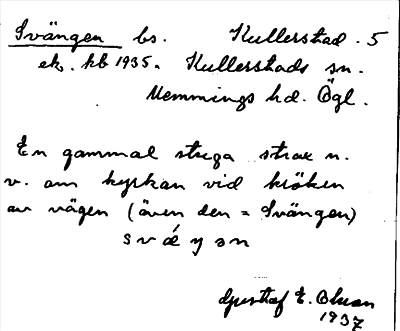 Svängen bs. Kullerstad. 5
ek. kb 1935. Kullerstads sn.
Memmings hd. Ögl.
En gammal stuga strax n.
v. om kyrkan vid kröken
av vägen (även den = Svängen)
Gustaf E. Olsson
1937